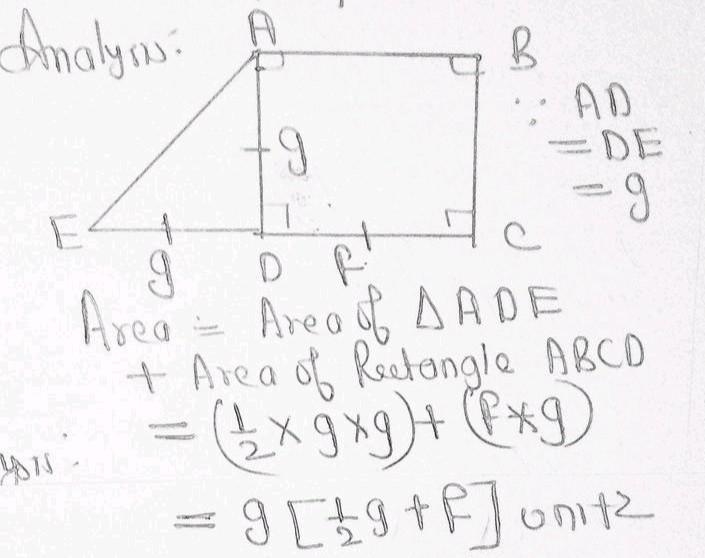 Analysis:
A
B
∵ AD
= DE
= g
g
E
g
D
f
C
Area = Area of ΔADE
+ Area of Rectangle ABCD
= (½ × g × g) + (f × g)
= g [½g + f] unit2